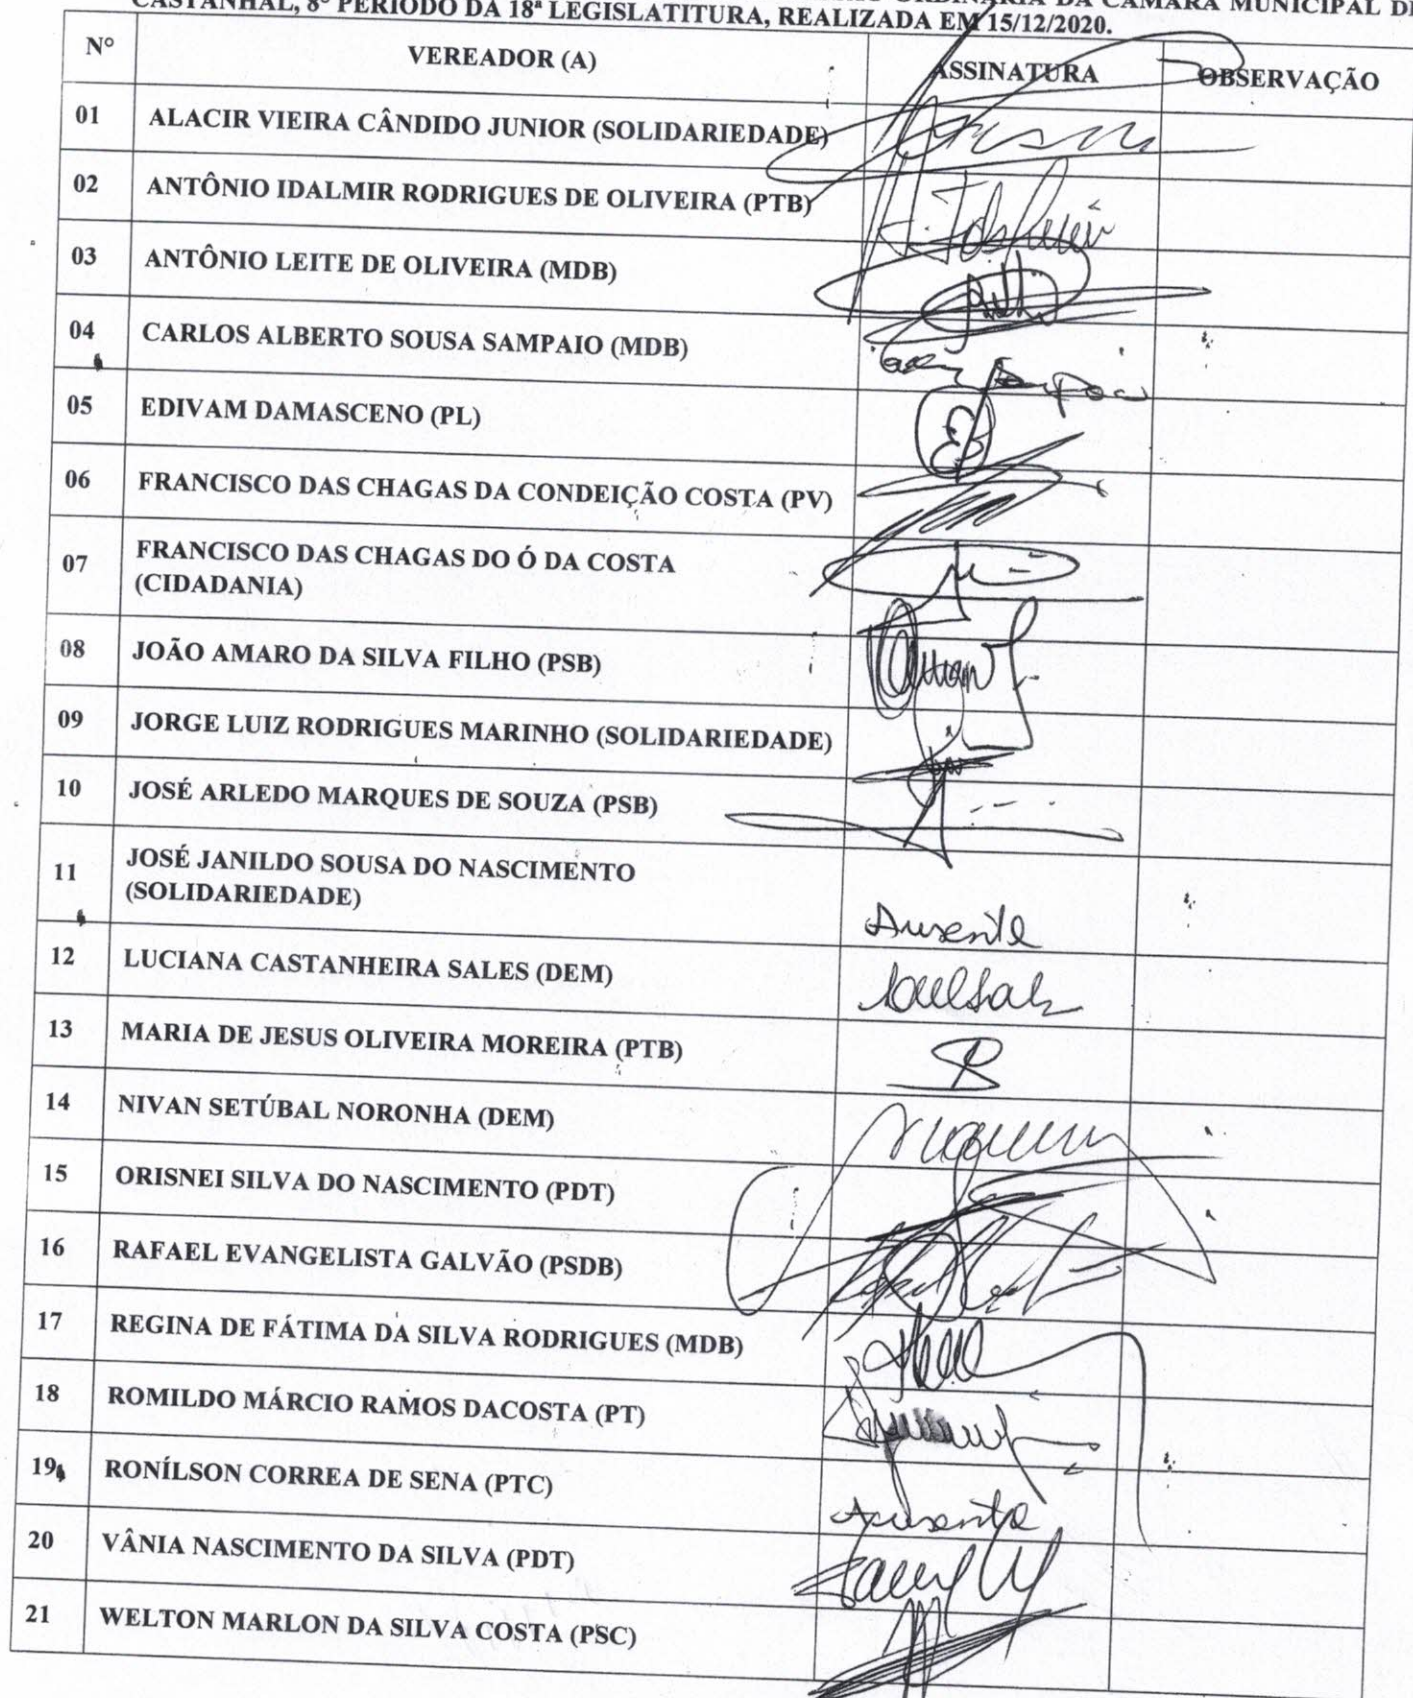 ORDINÁRIA DA CÂMARA MUNICIPAL DE
CASTANHAL, 8º PERÍODO DA 18ª LEGISLATITURA, REALIZADA EM 15/12/2020.
Nº VEREADOR (A) ASSINATURA OBSERVAÇÃO
01 ALACIR VIEIRA CÂNDIDO JUNIOR (SOLIDARIEDADE)
02 ANTÔNIO IDALMIR RODRIGUES DE OLIVEIRA (PTB)
03 ANTÔNIO LEITE DE OLIVEIRA (MDB)
04 CARLOS ALBERTO SOUSA SAMPAIO (MDB)
05 EDIVAM DAMASCENO (PL)
06 FRANCISCO DAS CHAGAS DA CONDEIÇÃO COSTA (PV)
07 FRANCISCO DAS CHAGAS DO Ó DA COSTA
(CIDADANIA)
08 JOÃO AMARO DA SILVA FILHO (PSB)
09 JORGE LUIZ RODRIGUES MARINHO (SOLIDARIEDADE)
10 JOSÉ ARLEDO MARQUES DE SOUZA (PSB)
11 JOSÉ JANILDO SOUSA DO NASCIMENTO
(SOLIDARIEDADE) Ausente
12 LUCIANA CASTANHEIRA SALES (DEM)
13 MARIA DE JESUS OLIVEIRA MOREIRA (PTB)
14 NIVAN SETÚBAL NORONHA (DEM)
15 ORISNEI SILVA DO NASCIMENTO (PDT)
16 RAFAEL EVANGELISTA GALVÃO (PSDB)
17 REGINA DE FÁTIMA DA SILVA RODRIGUES (MDB)
18 ROMILDO MÁRCIO RAMOS DACOSTA (PT)
19 RONÍLSON CORREA DE SENA (PTC) Ausente
20 VÂNIA NASCIMENTO DA SILVA (PDT)
21 WELTON MARLON DA SILVA COSTA (PSC)